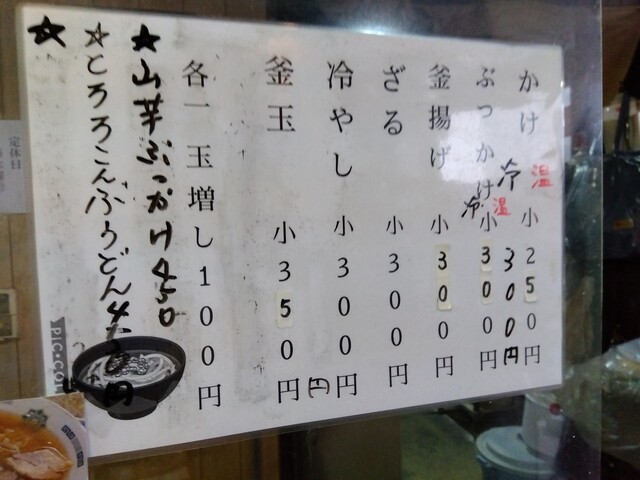 かけ 温 小 250円
冷 300円
ぶっかけ 冷 温 小 300円
釜揚げ 小 300円
ざる 小 300円
冷やし 小 300円
釜玉 小 350円
円
各一玉増し100円
★山芋ぶっかけ450
☆とろろこんぶうどん4 0円
★
定休日
PIC-COL